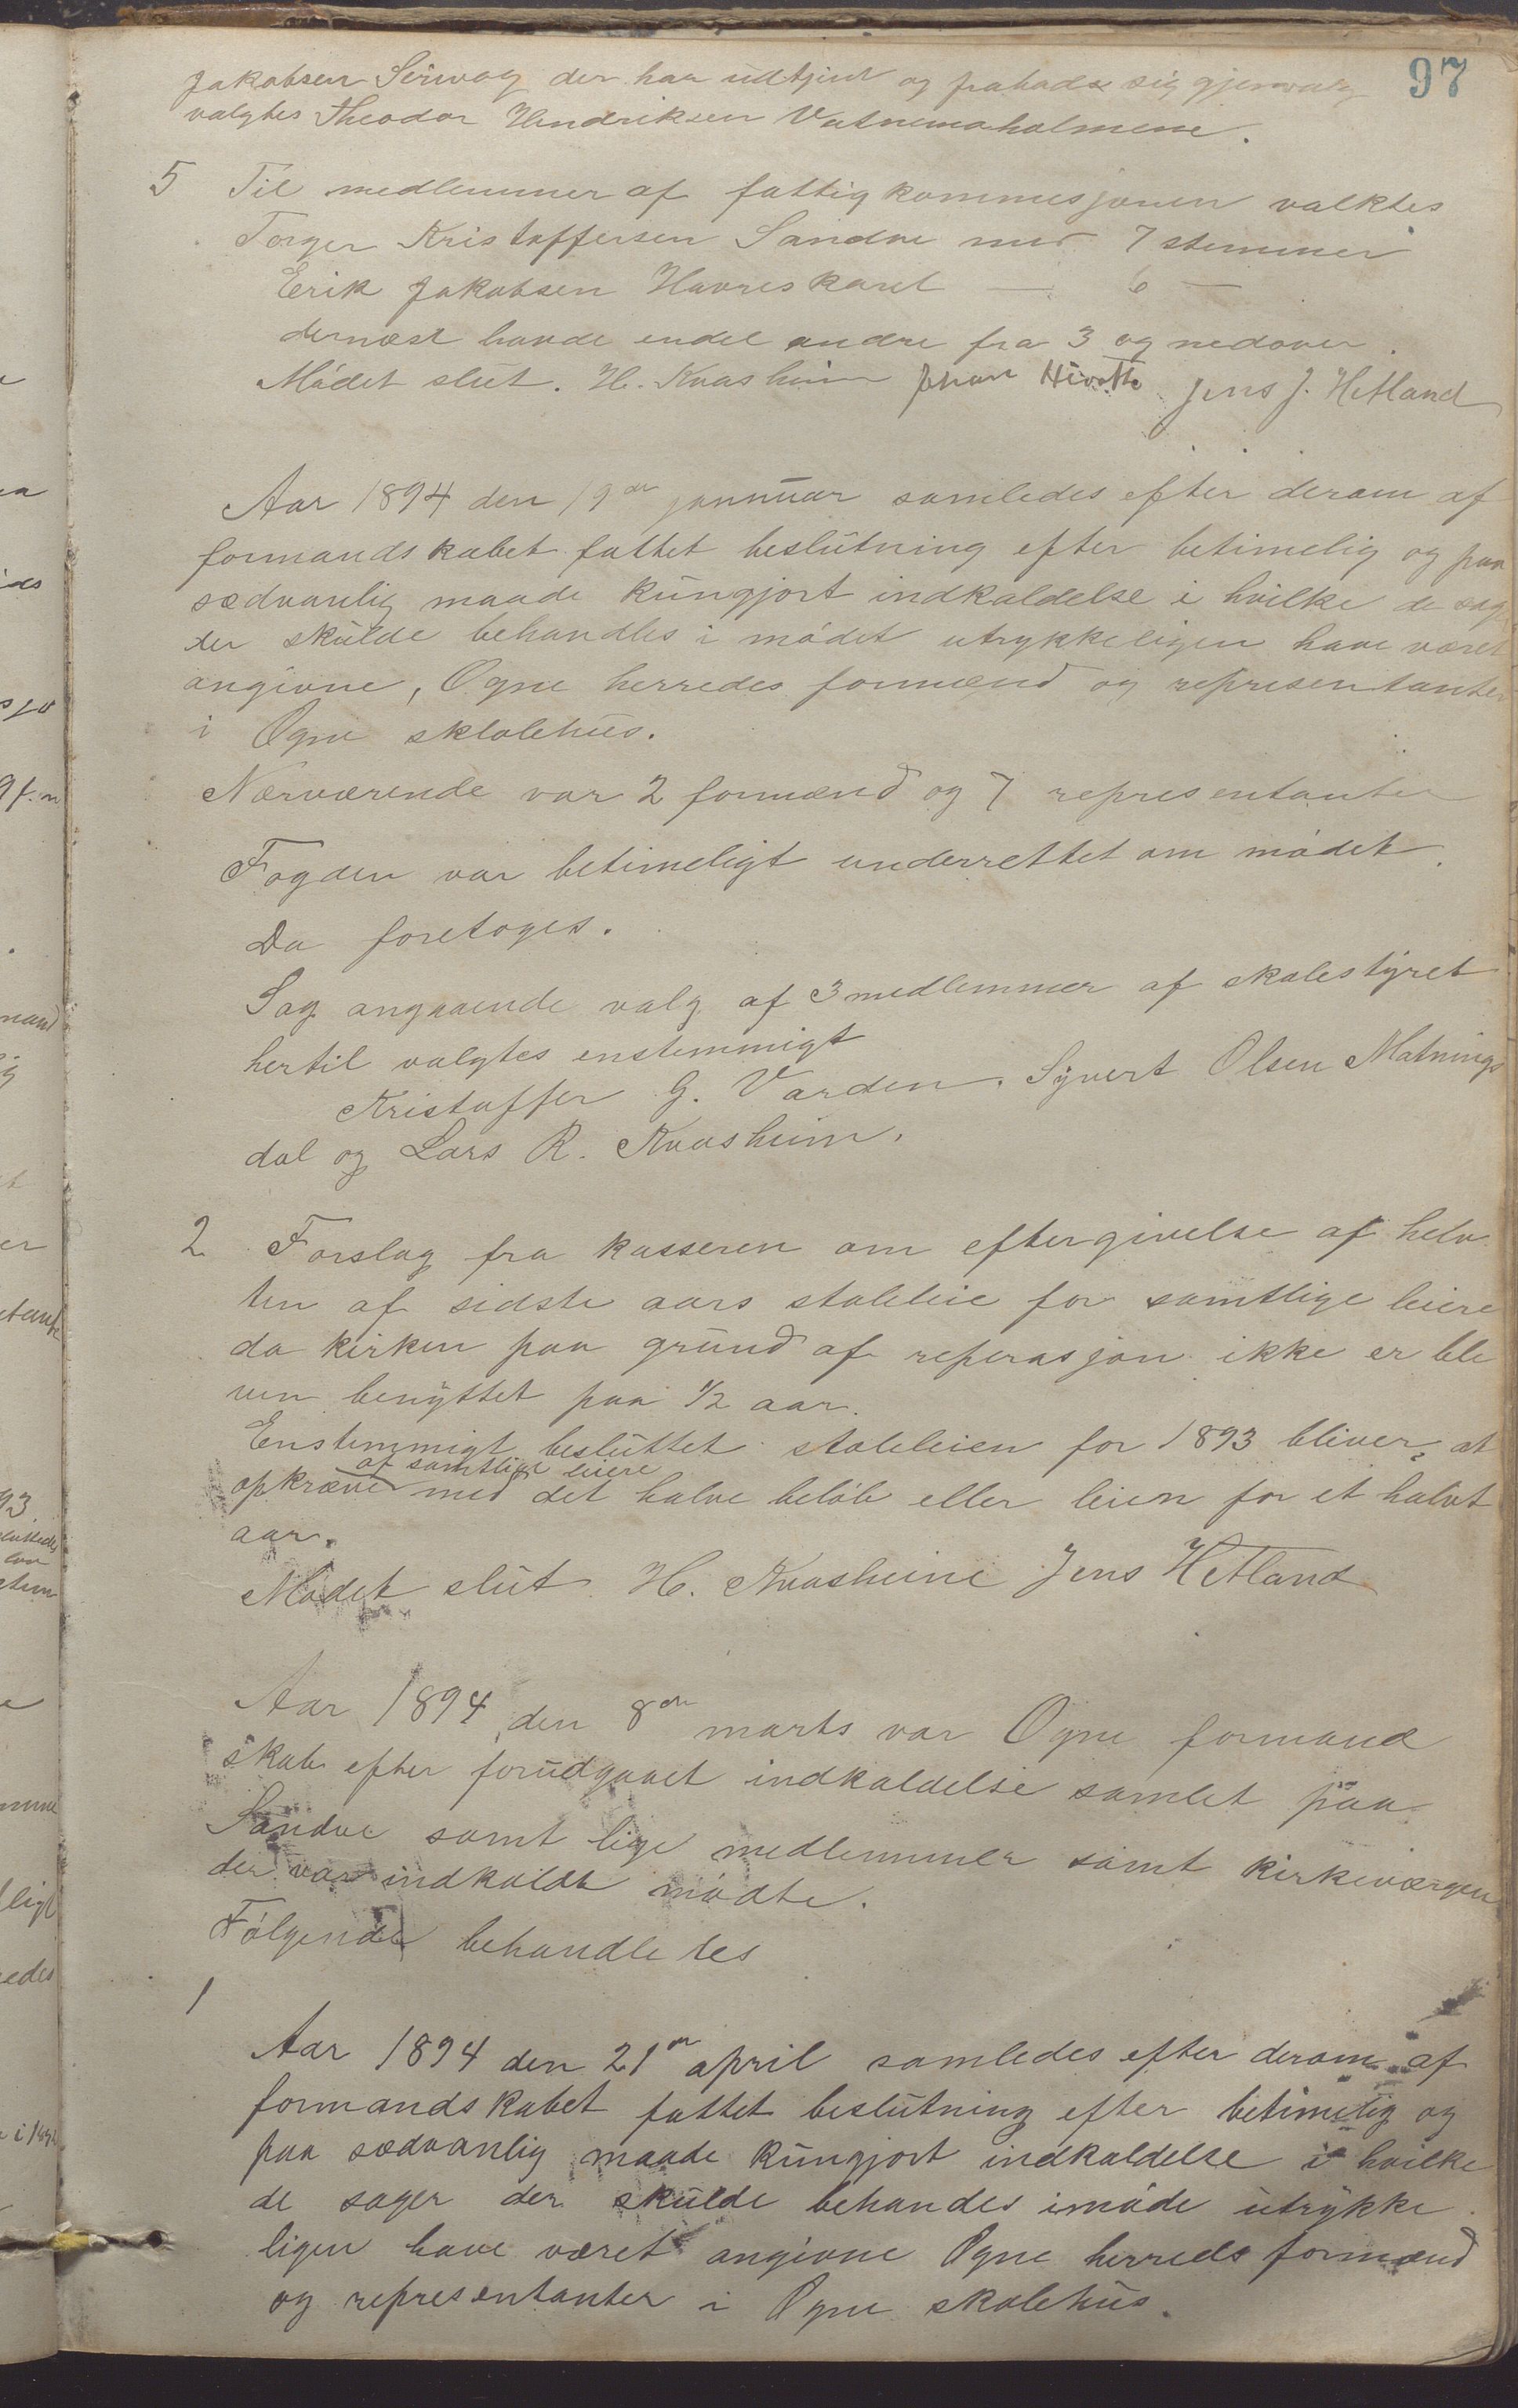 97
Jakobsen Sirevaag der har udtjent og frabade sig gjenvalg
valgtes Theodor Hendriksen Vatnemoholmene.
5 Til medlemmer af fattigkommesjonen valktes
Torger Kristoffersen Sandve med 7 stemmer
Erik Jakobsen Havreskaret — 6 —
dernæst havde endel andre fra 3 og nedover.
Mödet slut. H. Kvasheim Jens J. Hetland
Aar 1894 den 19de jannuar samledes efter derom af
formandskabet fattet beslutning efter betimelig og paa
sædvanlig maade kungjort indkaldelse i hvilke de sag
der skulde behandles i mödet utrykkeligen have været
angivne, Ogne herredes formænd og representanter
i Ogne sklolehus.
Nærværende var 2 formænd og 7 representanter
Fogden var betimeligt underrettet om mödet.
Da foretoges.
Sag angaaende valg af 3 medlemmer af skolestyret
hertil valgtes enstemmigt
Kristoffer G. Varden, Syvert Olsen Matnings
dal og Lars R. Kvasheim.
2 Forslag fra kasseren om eftergivelse af helv
ten af sidste aars stoleleie for samtlige leiere
da kirken paa grund af reperasjon ikke er ble
ven benyttet paa 1/2 aar.
Enstemmigt besluttet stoleleien for 1893 bliver at
af samtlige leiere
opkræve med det halve belöb eller leien for et halvt
aar.
Mödet slut H. Kvasheim Jens Hetland
Aar 1894 den 8de marts var Ogne formand
skab efter forudgaaet indkaldelse samlet paa
Sandve samt lige medlemmer samt kirkeværgen
der var indkaldt mödte.
Fölgende behandle tes
1
Aar 1894 den 21de april samledes efter derom af
formandskabet fattet beslutning efter betimelig og
paa sædvanlig maade kungjort indkaldelse i hvilke
de sager der skulde behandes i möde utrykke
ligen have været angivne Ogne herreds formænd
og representanter i Ogne skolehus.